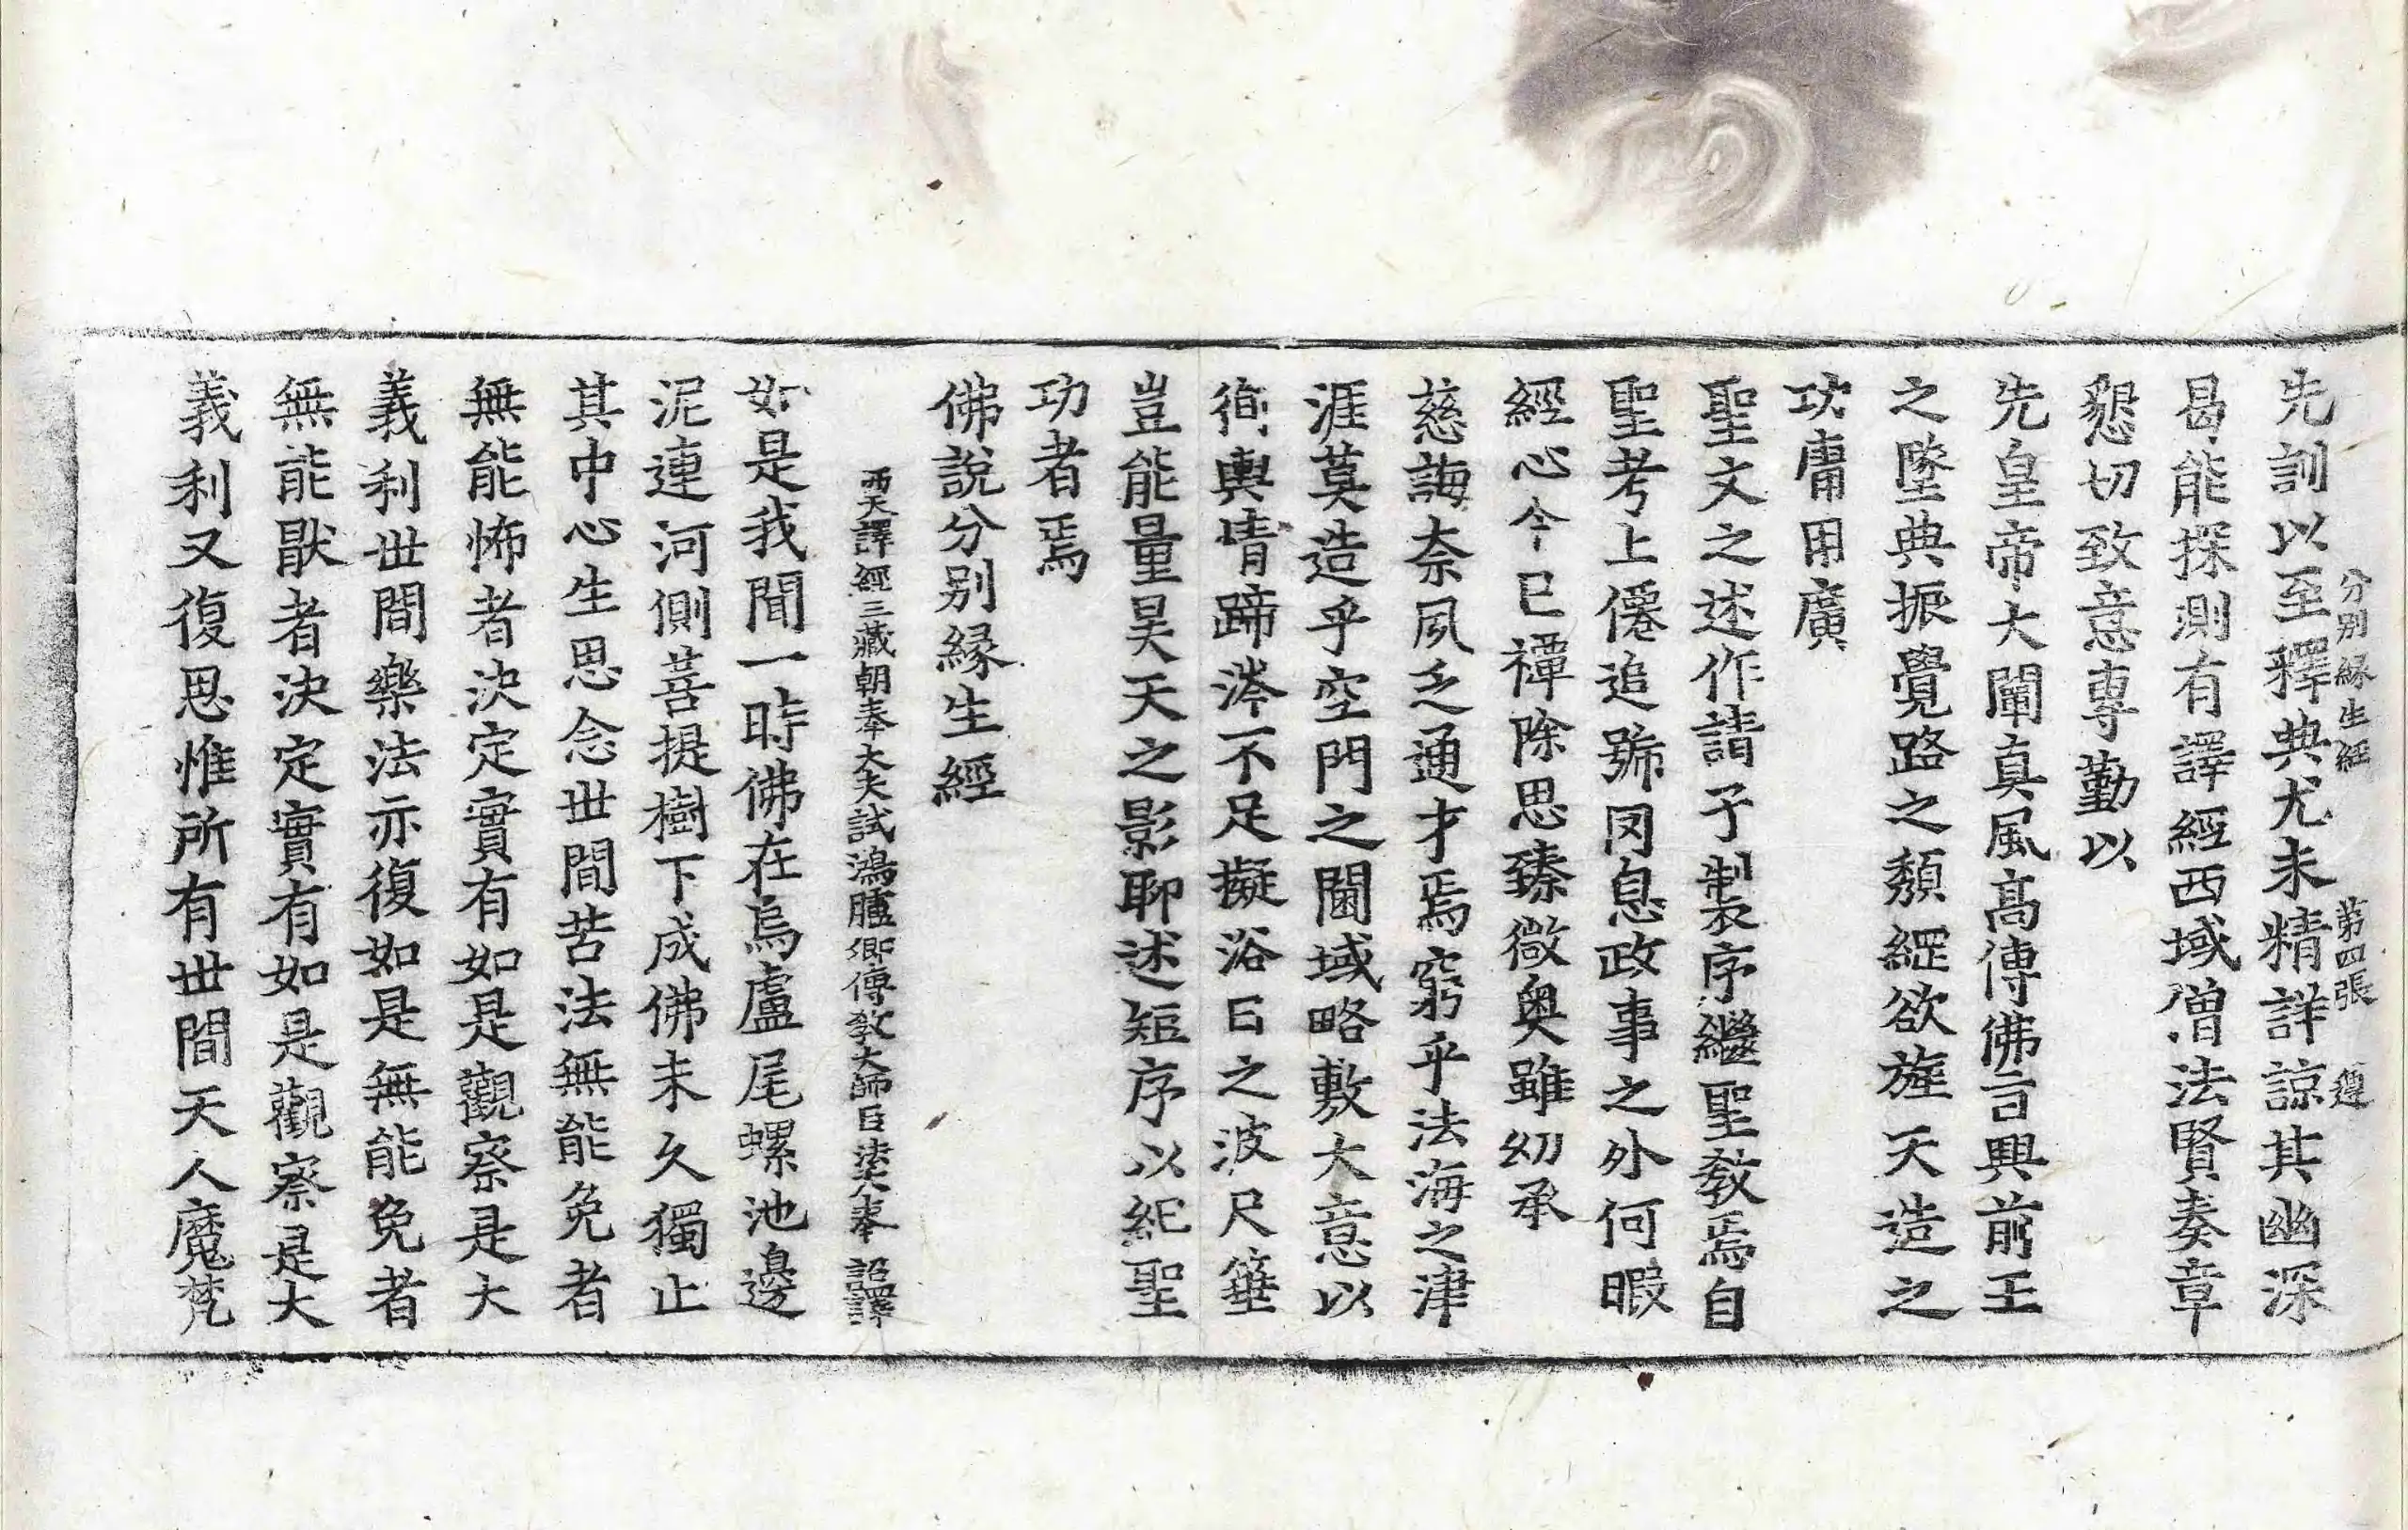 分別緣生經 第四張 遵
先訓以至釋典尤未精詳諒其幽深
曷能探測有譯經西域僧法賢奏章
懇切致意專勤以
先皇帝大闡真風高傳佛言興前王
之墜典振覺路之頹綱欲旌天造之
功庸用廣
聖文之述作請予製序繼聖教焉自
聖考上僊追號罔息政事之外何暇
經心今已禫除思臻微奧雖幼承
慈誨柰夙乏通才焉窮乎法海之津
涯莫造乎空門之閫域略敷大意以
徇輿情蹄涔不足擬浴日之波尺箠
豈能量昊天之影聊述短序以紀聖
功者焉
佛說分別緣生經
西天譯經三藏朝奉大夫試鴻臚卿傳教大師臣法天奉 詔譯
如是我聞一時佛在烏盧尾螺池邊
泥連河側菩提樹下成佛未久獨止
其中心生思念世間苦法無能免者
無能怖者決定實有如是觀察是大
義利世間樂法亦復如是無能免者
無能猒者決定實有如是觀察是大
義利又復思惟所有世間天人魔梵